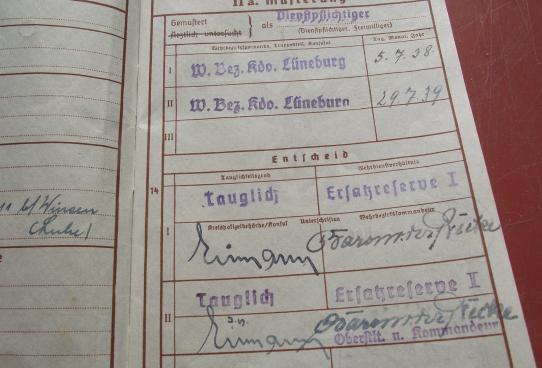 II a. Musterung
Gemustert
ärztlich untersucht
als Dienstpflichtiger
(Dienstpflichtiger, Freiwilliger)
Tag, Monat, Jahr
I W. Bez. Kdo. Lüneburg 5.7.38
II W. Bez. Kdo. Lüneburg 29.7.39
III
Entscheid
14
Tauglichkeitsgrad Wehrdienstverhältnis
Tauglich Ersatzreserve I
Kreispolizeibehörde/Konsul Unterschriften Wehrbezirkskommandeur
I
Tauglich Ersatzreserve I
II
Oberstlt. u. Kommandeur
b/Winsen
(Luhe)